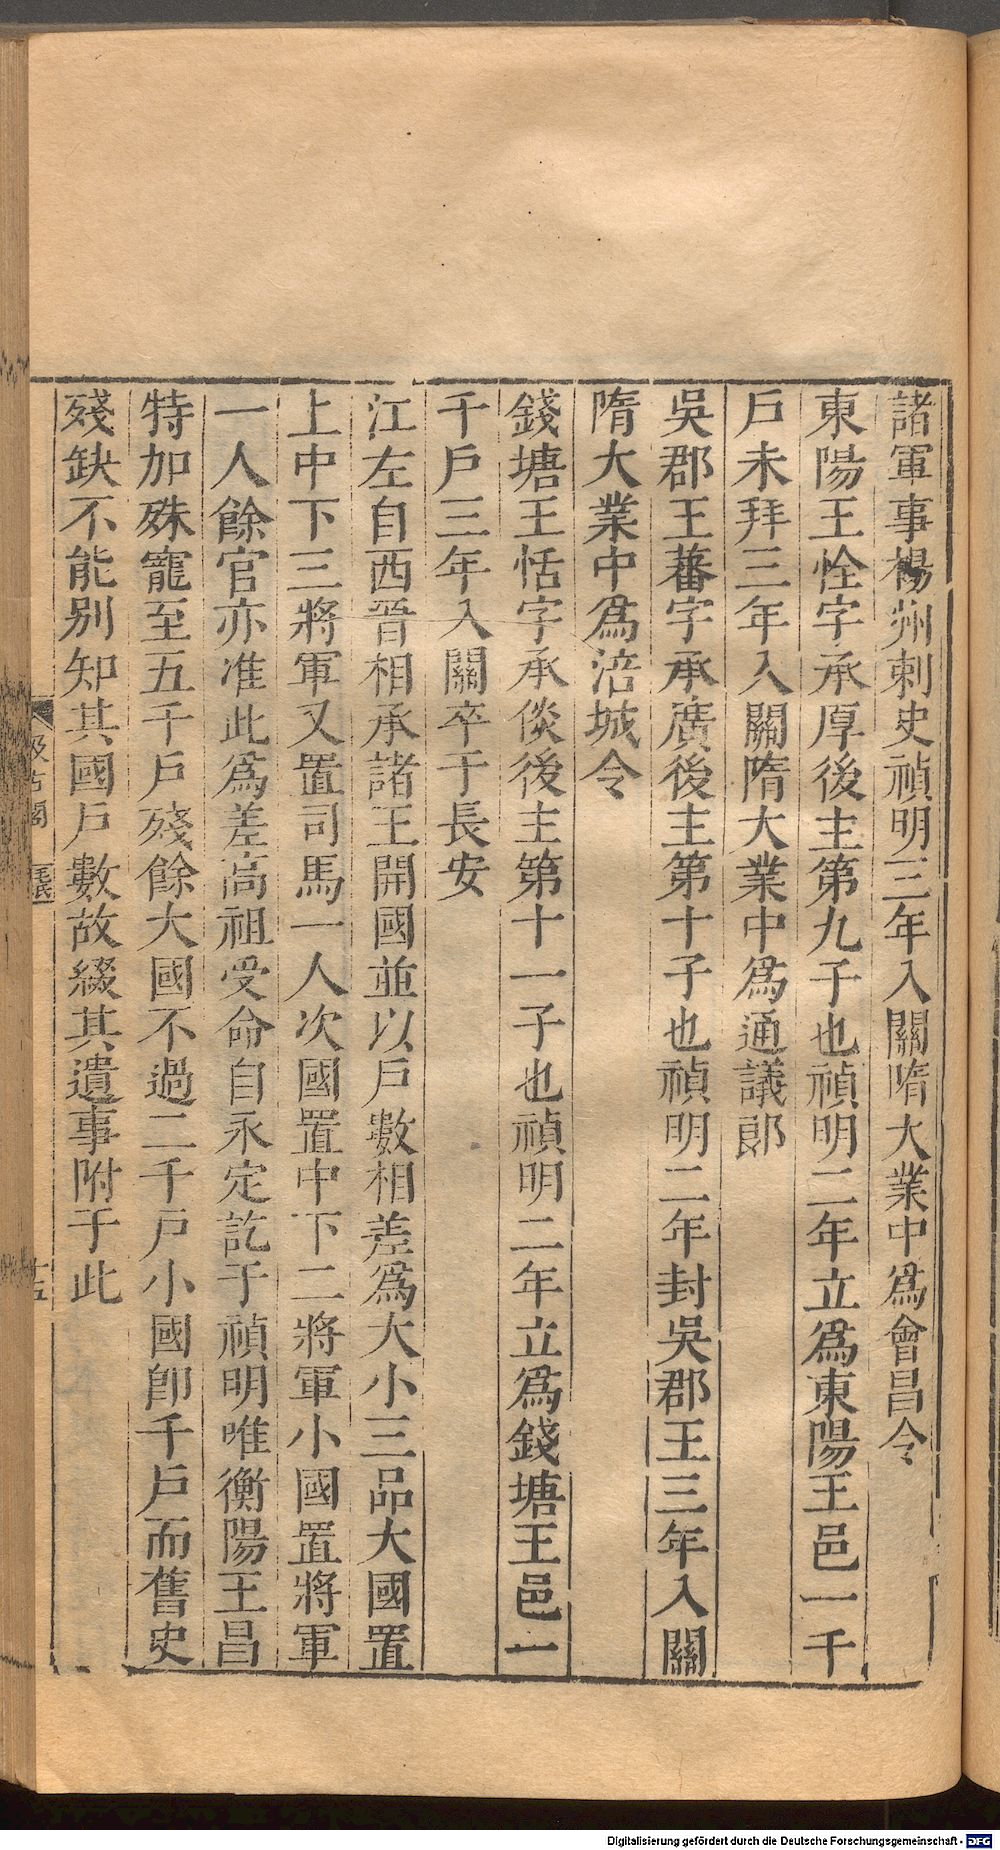 諸軍事楊州刺史禎明三年入關隋大業中為會昌令
東陽王恮字承厚後主第九子也禎明二年立為東陽王邑一千
戶未拜三年入關隋大業中為通議郎
吳郡王蕃字承廣後主第十子也禎明二年封吳郡王三年入關
隋大業中為涪城令
錢塘王恬字承惔後主第十一子也禎明二年立為錢塘王邑一
千戶三年入關卒于長安
江左自西晉相承諸王開國並以戶數相差為大小三品大國置
上中下三將軍又置司馬一人次國置中下二將軍小國置將軍
一人餘官亦准此為差高祖受命自永定訖于禎明唯衡陽王昌
特加殊寵至五千戶殘餘大國不過二千戶小國卽千戶而舊史
殘缺不能別知其國戶數故綴其遺事附于此
汲古閣
毛氏
十五
Digitalisierung gefördert durch die Deutsche Forschungsgemeinschaft - DFG